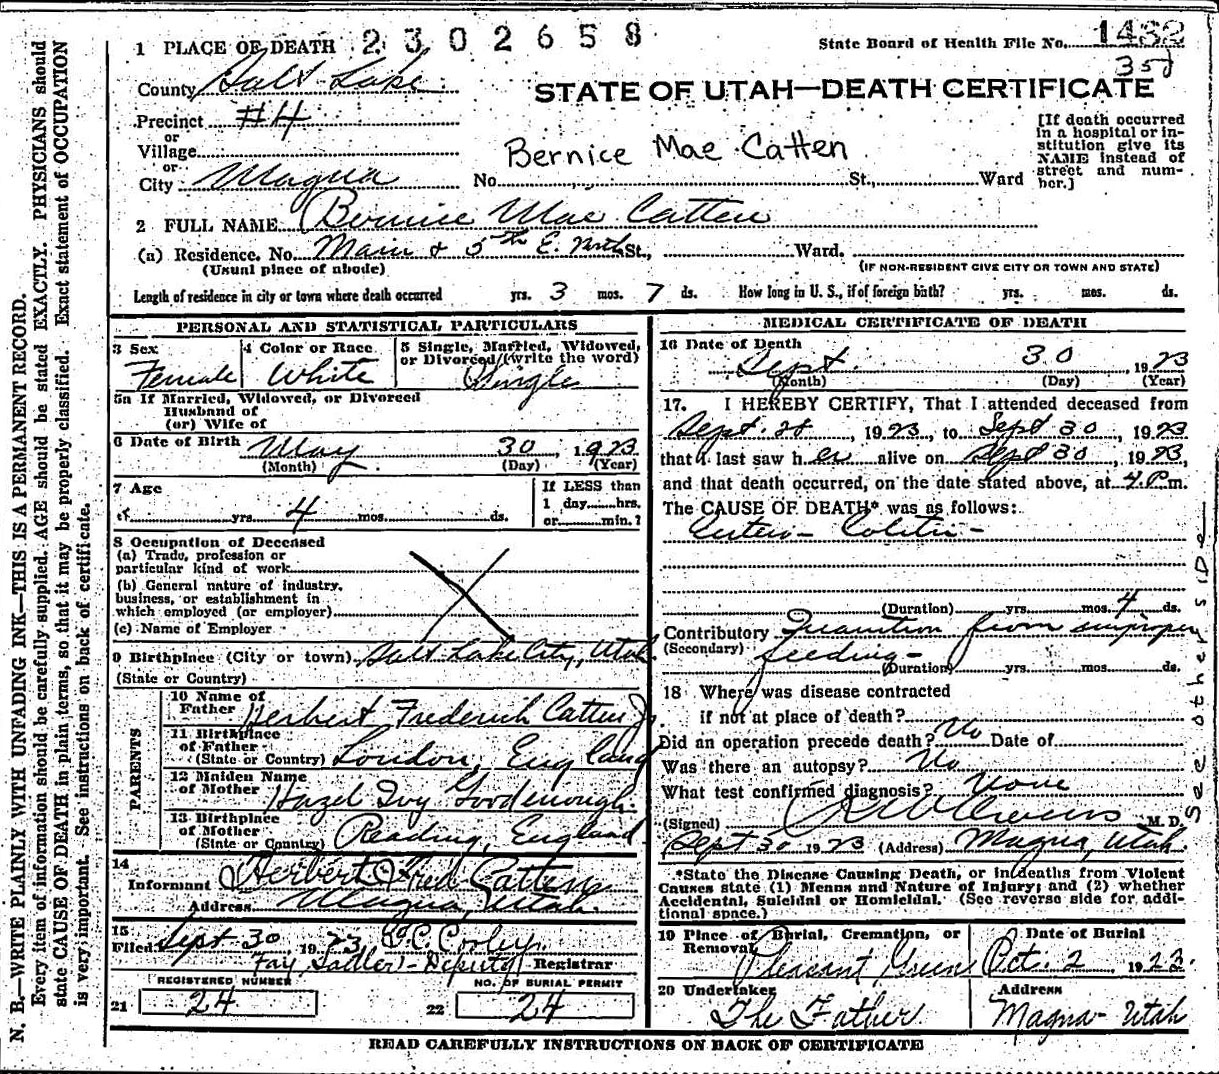 1 PLACE OF DEATH 2302658
State Board of Health File No. 1482
35d
County Salt Lake
STATE OF UTAH—DEATH CERTIFICATE
Precinct #4
or
Village
or
City Magna No. St., Ward
Bernice Mae Catten
[If death occurred
in a hospital or in-
stitution give its
NAME instead of
street and num-
ber.]
2 FULL NAME Bernice Mae Catten
(a) Residence. No. Main & 5th E. North St., Ward.
(Usual place of abode)
(IF NON-RESIDENT GIVE CITY OR TOWN AND STATE)
Length of residence in city or town where death occurred yrs. 3 mos. 7 ds. How long in U. S., if of foreign birth? yrs. mos. ds.
PERSONAL AND STATISTICAL PARTICULARS
3 Sex
Female
4 Color or Race
White
5 Single, Married, Widowed,
or Divorced (write the word)
Single
5a If Married, Widowed, or Divorced
Husband of
(or) Wife of
6 Date of Birth May 30 1923
(Month) (Day) (Year)
7 Age
yrs. 4 mos. ds.
If LESS than
1 day hrs.
or min.?
8 Occupation of Deceased
(a) Trade, profession or
particular kind of work
(b) General nature of industry,
business, or establishment in
which employed (or employer)
(c) Name of Employer
9 Birthplace (City or town) Salt Lake City, Utah
(State or Country)
PARENTS
10 Name of
Father Herbert Frederich Catten Jr
11 Birthplace
of Father
(State or Country) London, England
12 Maiden Name
of Mother Hazel Ivy Goodenough
13 Birthplace
of Mother
(State or Country) Reading, England
14
Informant Herbert Fred Catten
Address Magna, Utah.
15
Filed Sept 30, 1923
Fay Sadler - Deputy Registrar
REGISTERED NUMBER
21 24
NO. OF BURIAL PERMIT
22 24
MEDICAL CERTIFICATE OF DEATH
16 Date of Death
Sept. 30 1923
(Month) (Day) (Year)
17. I HEREBY CERTIFY, That I attended deceased from
Sept. 28, 1923, to Sept 30, 1923
that I last saw her alive on Sept 30, 1923,
and that death occurred, on the date stated above, at 4 P.m.
The CAUSE OF DEATH* was as follows:
Entero-Colitis-
(Duration) yrs. mos. 4 ds.
Contributory Inanition from improper
(Secondary) feeding-
(Duration) yrs. mos. ds.
18 Where was disease contracted
if not at place of death?
Did an operation precede death? No Date of
Was there an autopsy? No
What test confirmed diagnosis? None
(Signed) Owens M. D.
Sept 30 1923 (Address) Magna, Utah
*State the Disease Causing Death, or in deaths from Violent
Causes state (1) Means and Nature of Injury; and (2) whether
Accidental, Suicidal or Homicidal. (See reverse side for addi-
tional space.)
19 Place of Burial, Cremation, or
Removal Pleasant Green
Date of Burial
Oct. 2 1923.
20 Undertaker
The Father
Address
Magna - Utah
READ CAREFULLY INSTRUCTIONS ON BACK OF CERTIFICATE
N. B.—WRITE PLAINLY WITH UNFADING INK—THIS IS A PERMANENT RECORD.
Every item of information should be carefully supplied. AGE should be stated EXACTLY. PHYSICIANS should
state CAUSE OF DEATH in plain terms, so that it may be properly classified. Exact statement of OCCUPATION
is very important. See instructions on back of certificate.
See other side